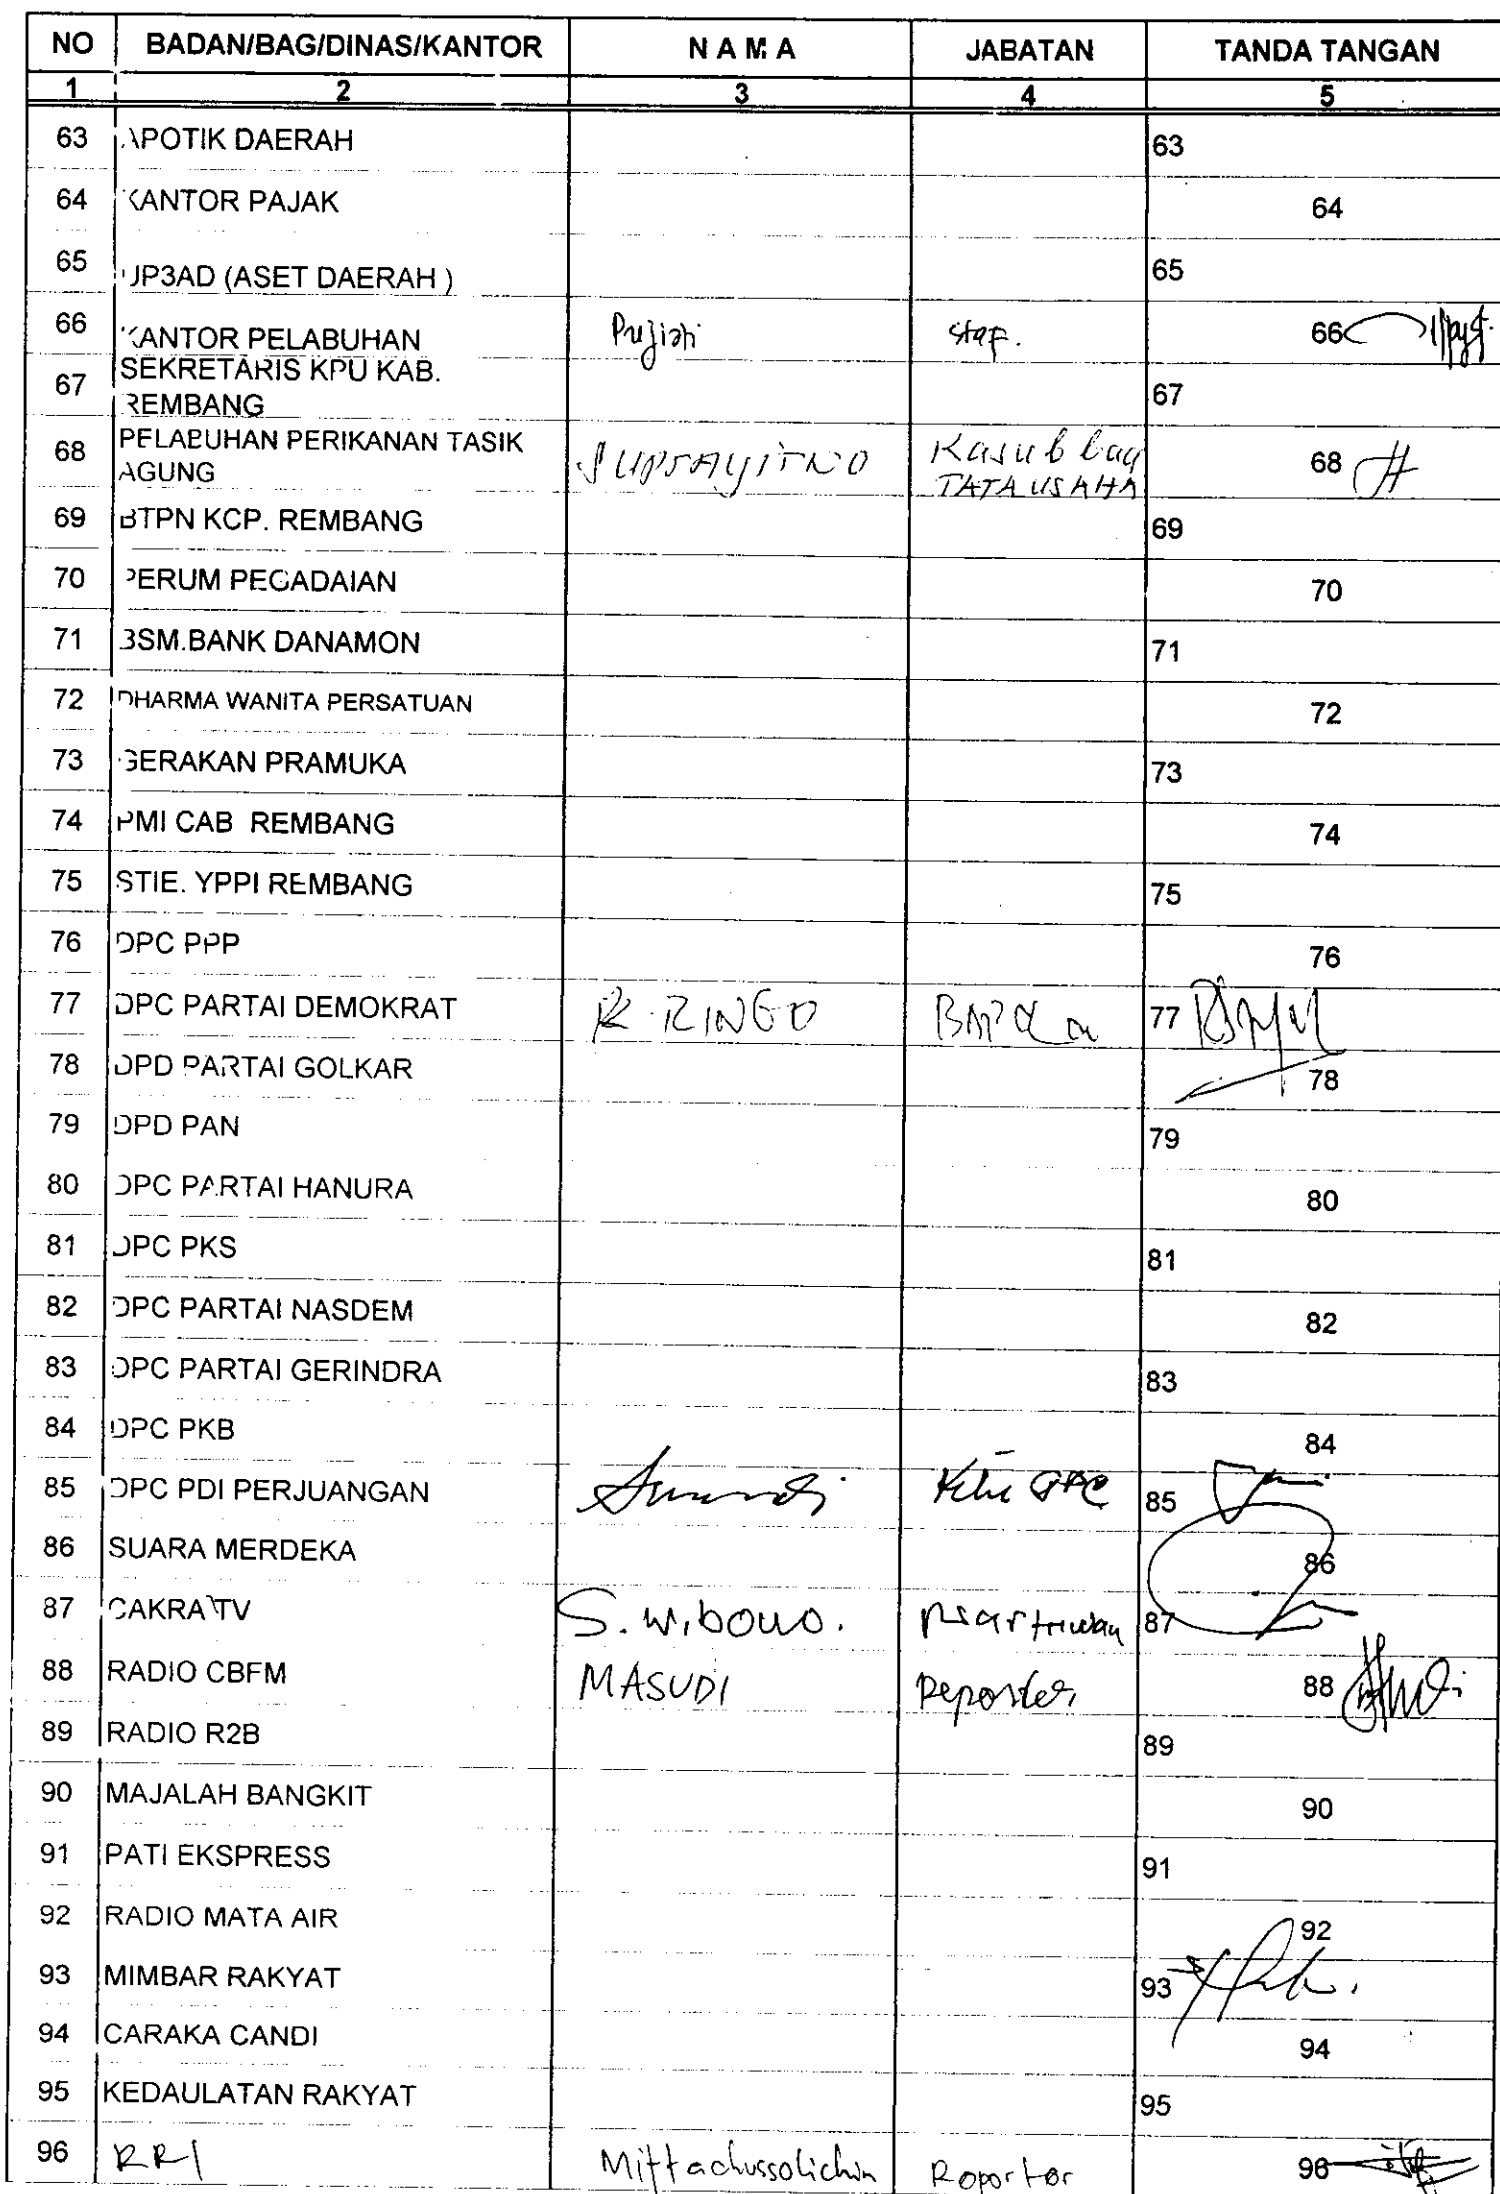 NO BADAN/BAG/DINAS/KANTOR N A M A JABATAN TANDA TANGAN
1 2 3 4 5
63 APOTIK DAERAH 63
64 KANTOR PAJAK 64
65 UP3AD (ASET DAERAH ) 65
66 KANTOR PELABUHAN Pujiati staf. 66
67 SEKRETARIS KPU KAB.
REMBANG 67
68 PELABUHAN PERIKANAN TASIK
AGUNG SUPRAYITNO Kasub bag
TATA USAHA 68
69 BTPN KCP. REMBANG 69
70 PERUM PEGADAIAN 70
71 BSM.BANK DANAMON 71
72 DHARMA WANITA PERSATUAN 72
73 GERAKAN PRAMUKA 73
74 PMI CAB REMBANG 74
75 STIE. YPPI REMBANG 75
76 DPC PPP 76
77 DPC PARTAI DEMOKRAT R. RINGO 77
78 DPD PARTAI GOLKAR 78
79 DPD PAN 79
80 DPC PARTAI HANURA 80
81 DPC PKS 81
82 DPC PARTAI NASDEM 82
83 DPC PARTAI GERINDRA 83
84 DPC PKB 84
85 DPC PDI PERJUANGAN 85
86 SUARA MERDEKA 86
87 CAKRA TV S. Wibowo. 87
88 RADIO CBFM MASUDI Reporter 88
89 RADIO R2B 89
90 MAJALAH BANGKIT 90
91 PATI EKSPRESS 91
92 RADIO MATA AIR 92
93 MIMBAR RAKYAT 93
94 CARAKA CANDI 94
95 KEDAULATAN RAKYAT 95
96 RRI Miftachussolichin Roportor 96